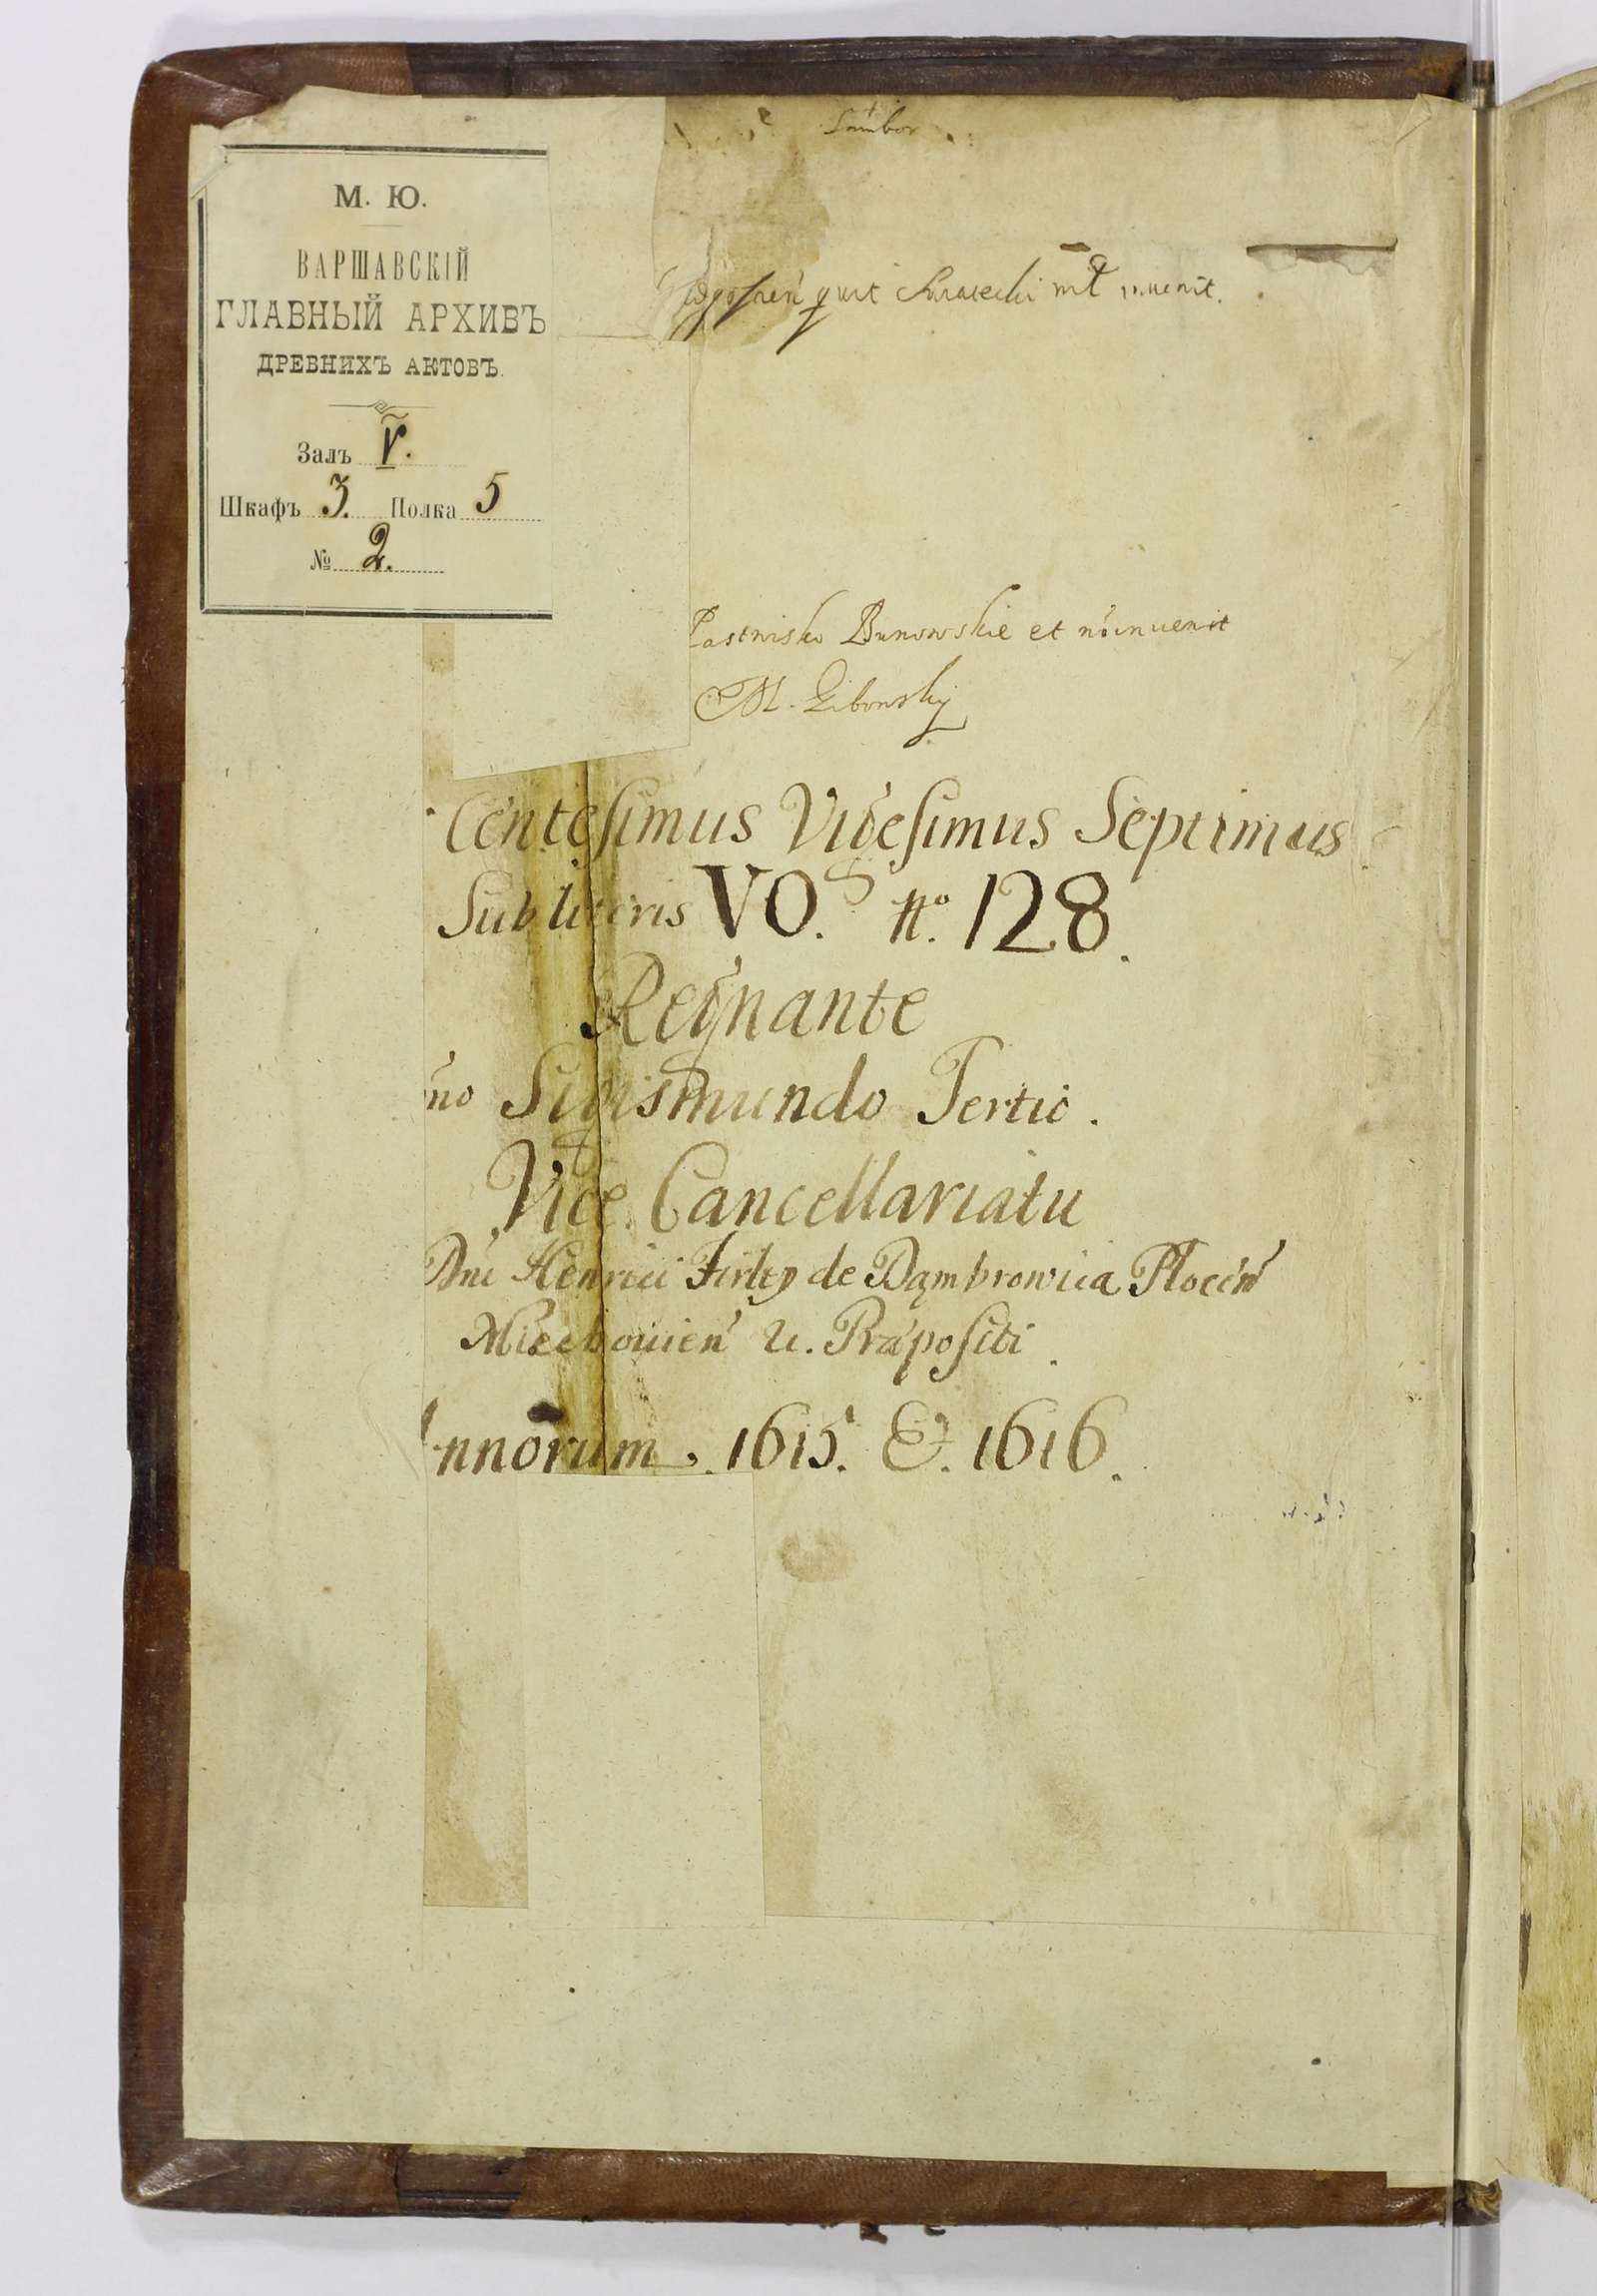 М. Ю.
ВАРШАВСКІЙ
ГЛАВНЫЙ АРХИВЪ
ДРЕВНИХЪ АКТОВЪ.
Залъ V.
Шкафъ 3. Полка 5
№ 2.
Sambor
invenit.
Pastwisko Bunowskie et nō invenit
M.
Centesimus Vigesimus Septimus
Sub literis VO. N.º 128.
Regnante
no Sigismundo Tertio.
Vice Cancellariatu
Dni Henrici Firley de Dąmbrowica Plocen
Miechovien u. Præpositi
nnorum. 1615. Et. 1616.